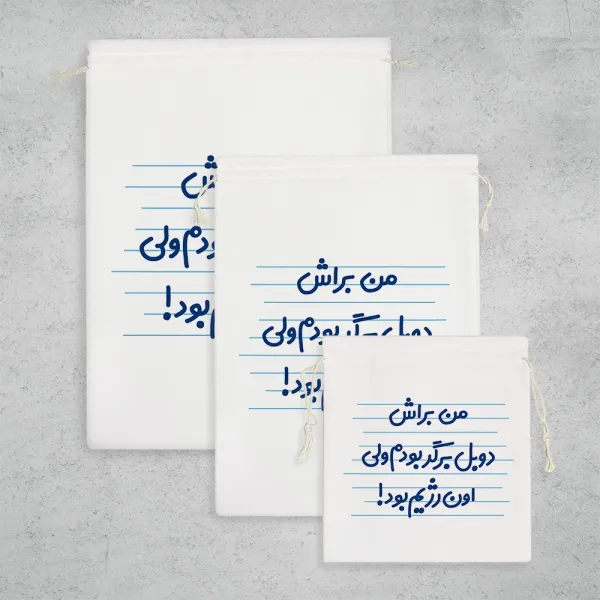 ولی
بود!
من براش
دوبل برگر بودم ولی
بود!
من براش
دوبل برگر بودم ولی
اون رژیم بود!